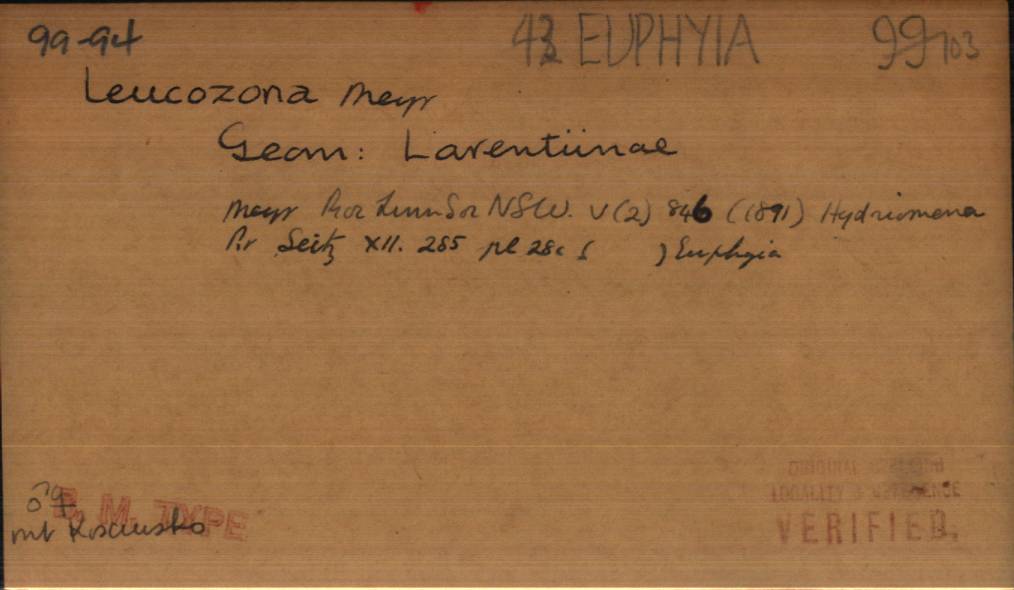 99-94 43 EUPHYIA 99 103
Leucozona Meyr
Geom: Larentiinae
Meyr Proc Linn Soc NSW. V (2) 846 (1891) Hydriomena
Pr Seitz XII. 285 pl 28c ( ) Euphyia
♂♀
B. M. TYPE
mt Kosciusko
ORIGINAL
LOCALITY & REFERENCE
VERIFIED.